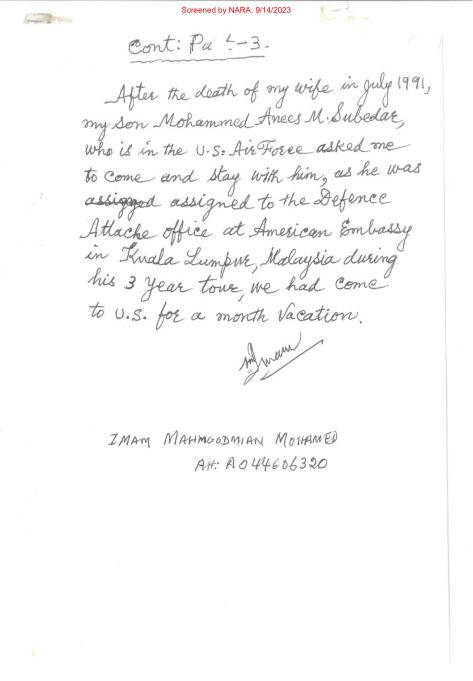 Screened by NARA, 9/14/2023
Cont: Pa -3.
After the death of my wife in July 1991,
my son Mohammed Anees M. Subedar,
who is in the U.S. Air Force asked me
to come and stay with him, as he was
assigned assigned to the Defence
Attache office at American Embassy
in Kuala Lumpur, Malaysia during
his 3 Year tour, we had come
to U.S. for a month Vacation.
IMAM MAHMOODMIAN MOHAMED
A#: A044606320